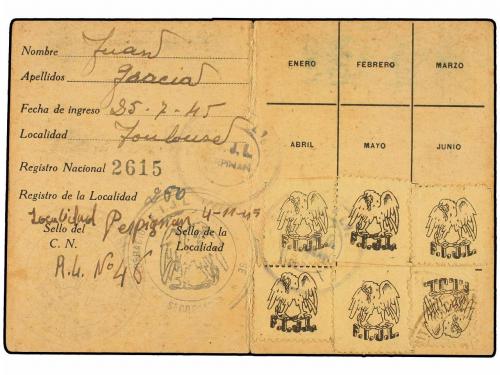 Nombre Juan
Apellidos Garcia
Fecha de ingreso 25-7-45
Localidad Toulouse
Registro Nacional 2615
Registro de la Localidad 260
Localidad Perpignan 4-11-45
Sello del C. N.
Sello de la Localidad
R.L. Nº 46
ENERO FEBRERO MARZO
ABRIL MAYO JUNIO
F.I.J.L. F.I.J.L. F.I.J.L.
F.I.J.L. F.I.J.L. F.I.J.L.